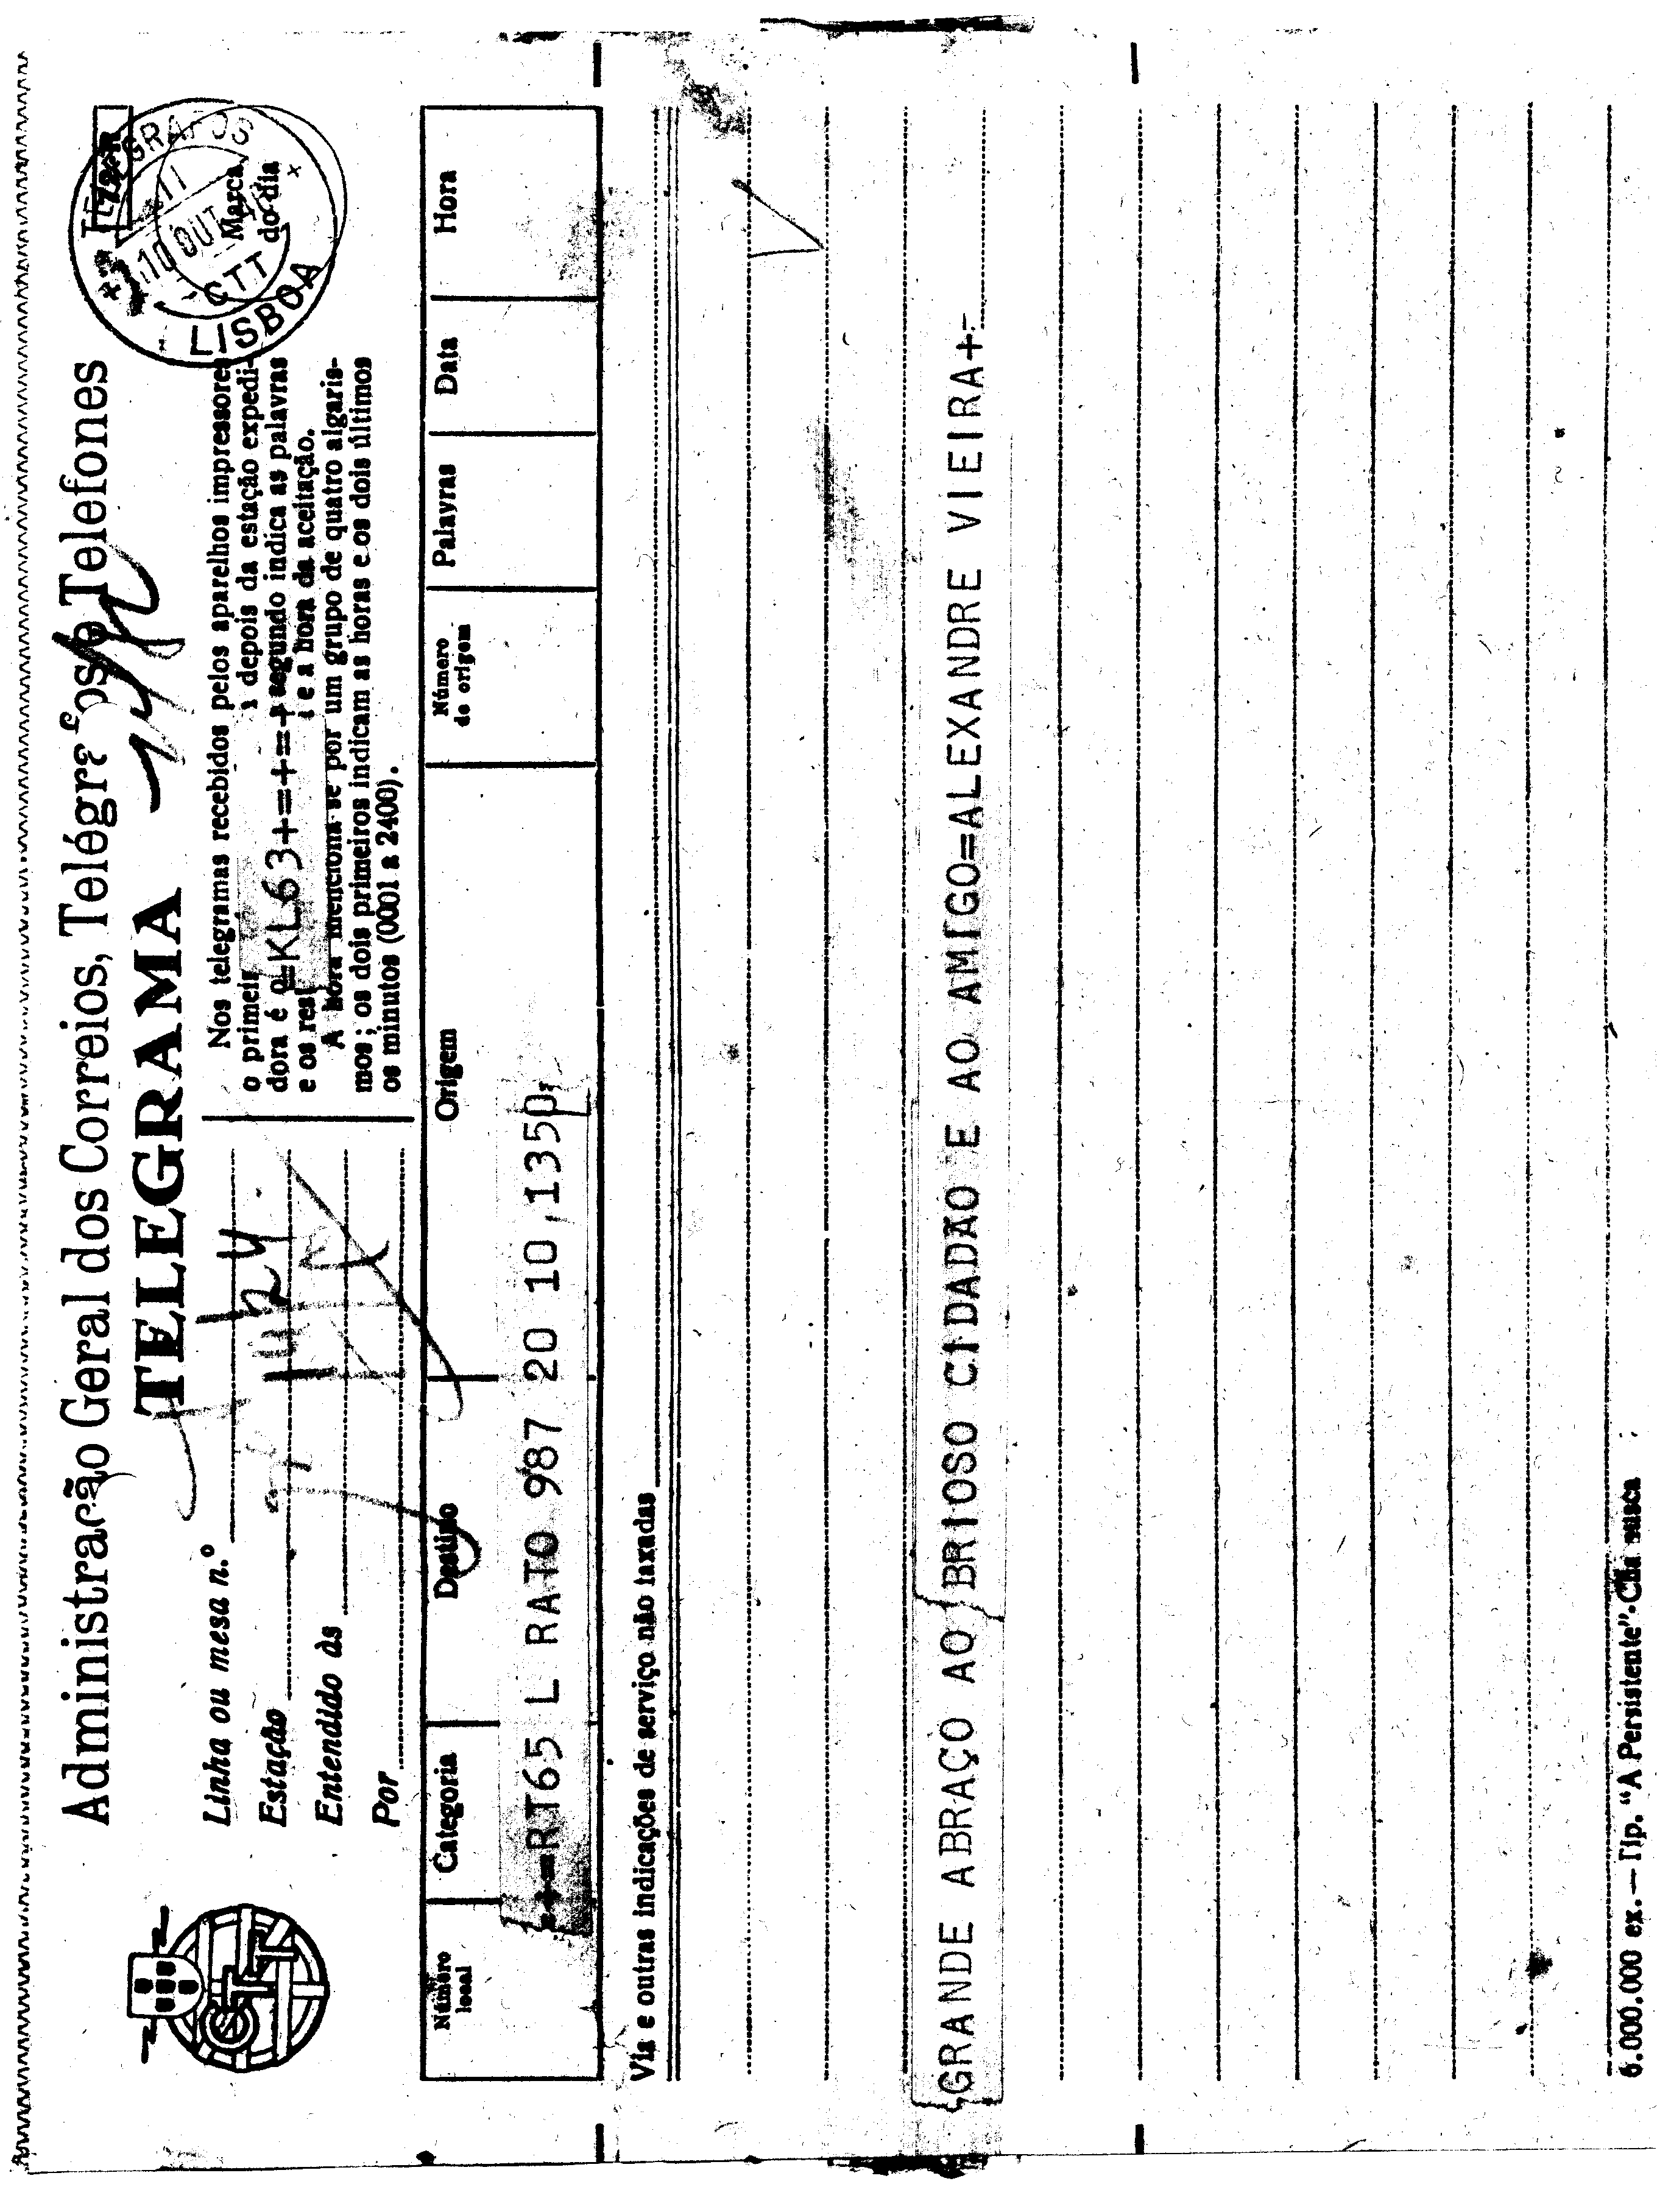 Administração Geral dos Correios, Telégrafos e Telefones
TELEGRAMA
TELÉGRAFOS
10 OUT
CTT
LISBOA
Marca
do dia
Linha ou mesa n.º
Estação
Entendido às
Por
Nos telegramas recebidos pelos aparelhos impressores
o primeir depois da estação expedi-
dora é o =KL63+=+=+ segundo indica as palavras
e os res e a hora da aceitação.
A hora menciona-se por um grupo de quatro algaris-
mos; os dois primeiros indicam as horas e os dois últimos
os minutos (0001 a 2400).
Número
local
Categoria
Destino
Origem
Número
de origem
Palavras
Data
Hora
+=RT65 L RATO 987 20 10,1350,
Via e outras indicações de serviço não taxadas
GRANDE ABRAÇO AO BRIOSO CIDADÃO E AO AMIGO=ALEXANDRE VIEIRA+=
6.000.000 ex. — Tip. "A Persistente"-Cha musca